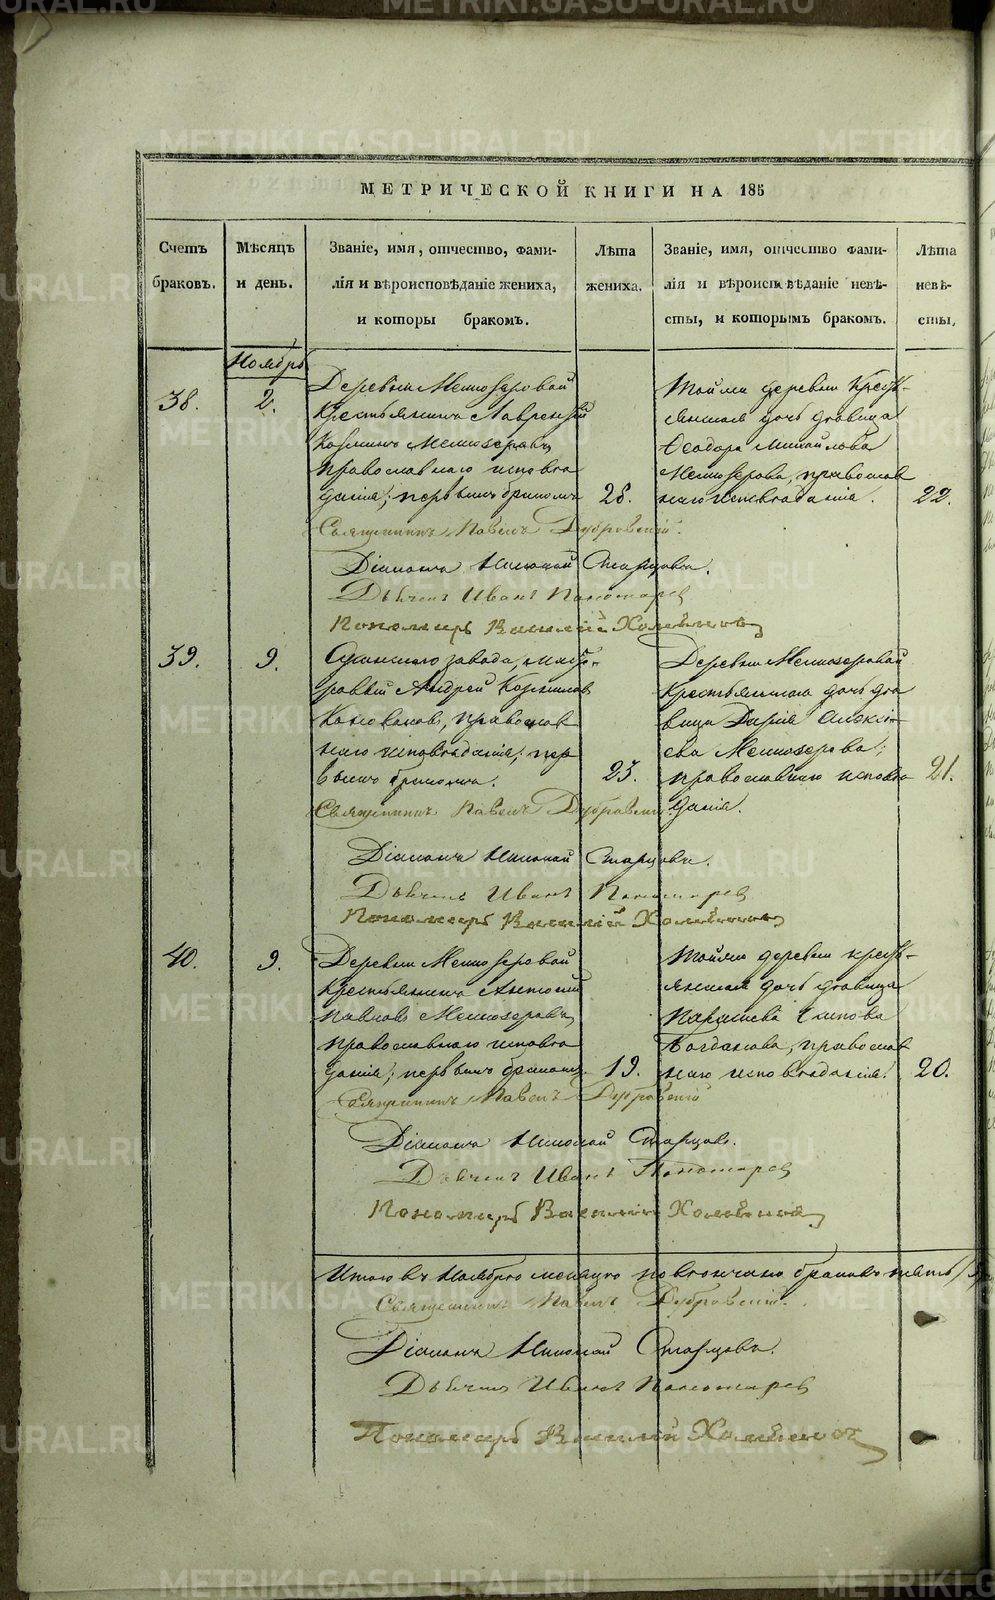 METRIKI.GASO-URAL.RU
МЕТРИЧЕСКОЙ КНИГИ НА 185
Счетъ браковъ.
Мѣсяцъ и день.
Званіе, имя, отчество, фами-
лія и вѣроисповѣданіе жениха,
и которы бракомъ.
Лѣта жениха.
Званіе, имя, отчество фами-
лія и вѣроиспвѣданіе невѣ-
сты, и которымъ бракомъ.
Лѣта невѣ-
сты,
Ноябрь
38.
2.
Деревни
Крестьянинъ Лаврентій
Козминъ
православнаго исповѣ
данія; первымъ бракомъ
28.
Тойже деревни крест-
янская дочь дѣвица
Ѳеодора Михайлова
православ
наго исповѣданія.
22.
Священникъ Павелъ Дубровскій.
Діаконъ Николай Старцовъ.
Дьячекъ Иванъ Пономарев
Пономарь Василій
39.
9.
завода,
Андрей
православ
наго исповѣданія; пер
вымъ бракомъ.
23.
Деревни
крестьянская дочь дѣ
вица Дарія Алексі-
ева
православнаго исповѣ
данія.
21.
Священникъ Павелъ Дубровскій
Діаконъ Николай Старцовъ.
Дьячекъ Иванъ Пономарев
Пономарь Василій
40.
9.
Деревни
Крестьянинъ Антоній
Павловъ
православнаго исповѣ
данія; первымъ бракомъ
19.
Тойже деревни крест-
янская дочь дѣвица
Богданова, православ
наго исповѣданія.
20.
Священникъ Павелъ Дубровскій
Діаконъ Николай Старцовъ.
Дьячекъ Иванъ Пономарев
Пономарь Василій
Итого въ Ноябрѣ мѣсяцѣ повѣнчано браковъ пять
Священникъ Павелъ Дубровскій.
Діаконъ Николай Старцовъ.
Дьячекъ Иванъ Пономарев
Пономарь Василій